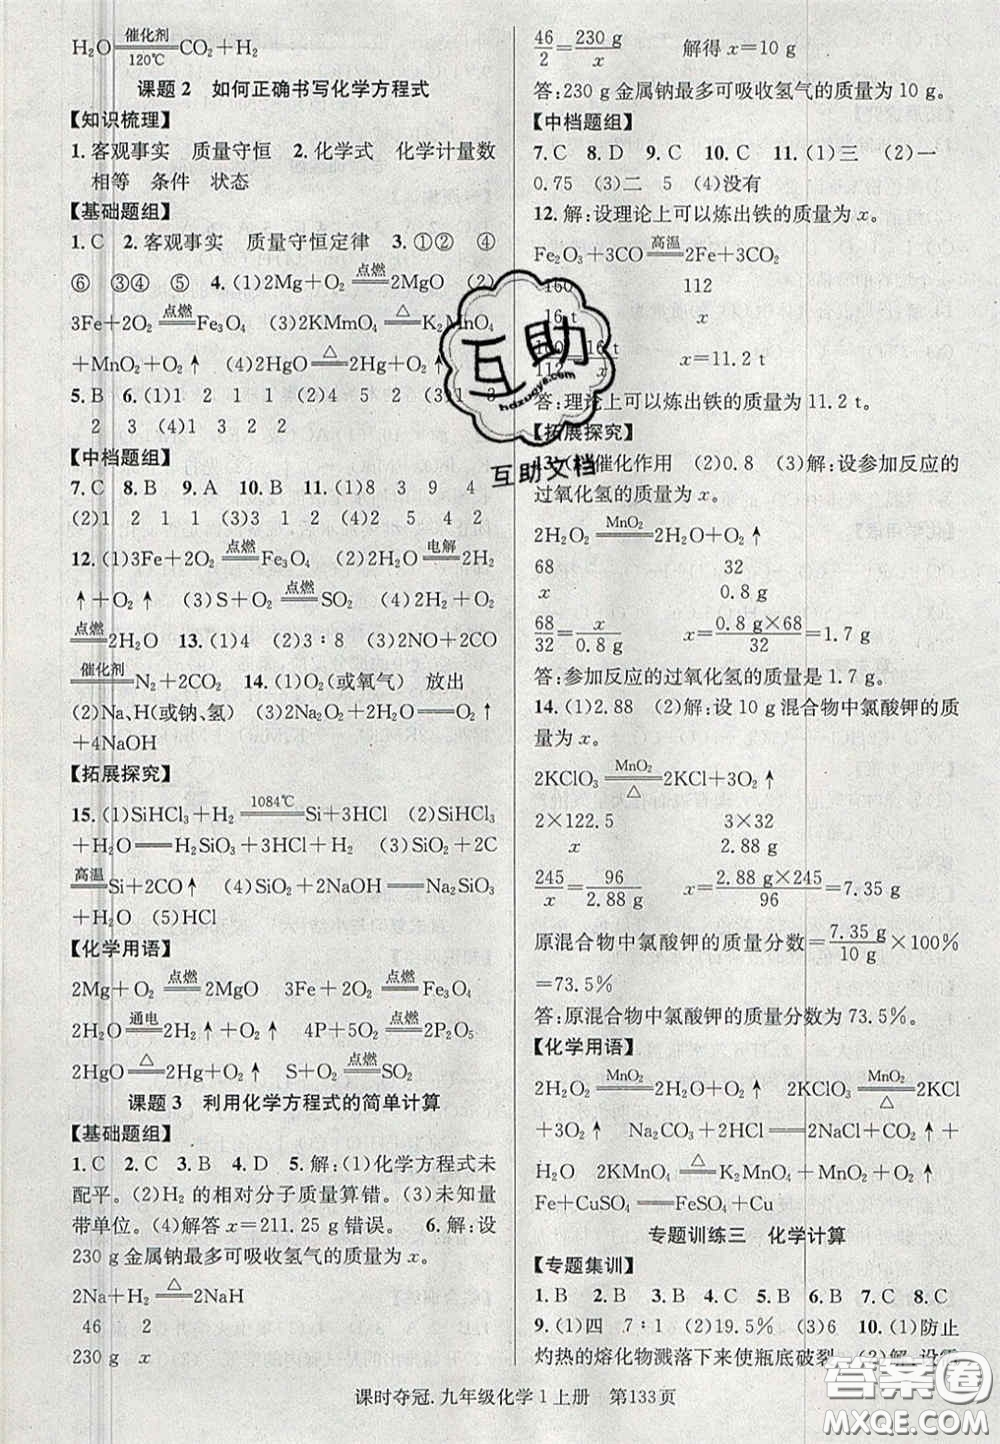 H₂O 催化剂═══120℃ CO₂+H₂
课题2 如何正确书写化学方程式
【知识梳理】
1. 客观事实 质量守恒 2. 化学式 化学计量数
相等 条件 状态
【基础题组】
1. C 2. 客观事实 质量守恒定律 3. ①② ④
⑥ ③④ ⑤ 4. (1)2Mg+O₂ 点燃═══ 2MgO (2)
3Fe+2O₂ 点燃═══ Fe₃O₄ (3)2KMmO₄ △═══ K₂MnO₄
+MnO₂+O₂↑ (4)2HgO △═══ 2Hg+O₂↑
5. B 6. (1)1 2 1 1 (2)4 5 2 (3)1 3
2 3 (4)1 3 2 2
【中档题组】
7. C 8. B 9. A 10. B 11. (1)4 8 3 9 4
(2)1 2 1 1 (3)1 3 1 (4)2 5 4 2
12. (1)3Fe+2O₂ 点燃═══ Fe₃O₄ (2)2H₂O 电解═══ 2H₂
↑+O₂↑ (3)S+O₂ 点燃═══ SO₂ (4)2H₂+O₂
点燃═══ 2H₂O 13. (1)4 (2)3∶8 (3)2NO+2CO
催化剂═══ N₂+2CO₂ 14. (1)O₂(或氧气) 放出
(2)Na、H(或钠、氢) (3)2Na₂O₂+2H₂O═══O₂↑
+4NaOH
【拓展探究】
15. (1)SiHCl₃+H₂ 1084℃═══ Si+3HCl (2)SiHCl₃
+H₂O═══H₂SiO₃+3HCl+H₂ (3)SiO₂+2C
高温═══ Si+2CO↑ (4)SiO₂+2NaOH═══Na₂SiO₃
+H₂O (5)HCl
【化学用语】
2Mg+O₂ 点燃═══ 2MgO 3Fe+2O₂ 点燃═══ Fe₃O₄
2H₂O 通电═══ 2H₂↑+O₂↑ 4P+5O₂ 点燃═══ 2P₂O₅
2HgO △═══ 2Hg+O₂↑ S+O₂ 点燃═══ SO₂
课题3 利用化学方程式的简单计算
【基础题组】
1. C 2. C 3. B 4. D 5. 解:(1)化学方程式未
配平。(2)H₂的相对分子质量算错。(3)未知量
带单位。(4)解答x=211.25 g错误。 6. 解:设
230 g金属钠最多可吸收氢气的质量为x。
2Na+H₂ △═══ 2NaH
46 2
230 g x
46/2=230 g/x 解得x=10 g
答:230 g金属钠最多可吸收氢气的质量为10 g。
【中档题组】
7. C 8. D 9. C 10. C 11. (1)三 (2)一
0.75 (3)二 5 (4)没有
12. 解:设理论上可以炼出铁的质量为x。
Fe₂O₃+3CO 高温═══ 2Fe+3CO₂
160 112
16 t x
160/112=16 t/x x=11.2 t
答:理论上可以炼出铁的质量为11.2 t。
【拓展探究】
13. 催化作用 (2)0.8 (3)解:设参加反应的
过氧化氢的质量为x。
2H₂O₂ MnO₂═══ 2H₂O+O₂↑
68 32
x 0.8 g
68/32=x/0.8 g x=0.8 g×68/32=1.7 g
答:参加反应的过氧化氢的质量是1.7 g。
14. (1)2.88 (2)解:设10 g混合物中氯酸钾的质
量为x。
2KClO₃ MnO₂═══△ 2KCl+3O₂↑
2×122.5 3×32
x 2.88 g
245/x=96/2.88 g x=2.88 g×245/96=7.35 g
原混合物中氯酸钾的质量分数=7.35 g/10 g×100%
=73.5%
答:原混合物中氯酸钾的质量分数为73.5%。
【化学用语】
2H₂O₂ MnO₂═══ 2H₂O+O₂↑ 2KClO₃ MnO₂═══△ 2KCl
+3O₂↑ Na₂CO₃+2HCl═══2NaCl+CO₂↑+
H₂O 2KMnO₄ △═══ K₂MnO₄+MnO₂+O₂↑
Fe+CuSO₄═══FeSO₄+Cu
专题训练三 化学计算
【专题集训】
1. B 2. B 3. B 4. D 5. B 6. B 7. B 8. C
9. (1)四 7∶1 (2)19.5% (3)6 10. (1)防止
灼热的熔化物溅落下来使瓶底破裂 (2)解:设需
课时夺冠.九年级化学1上册 第133页
互助
hdzuoye.com
互助文档
答案圈
MXQE.COM